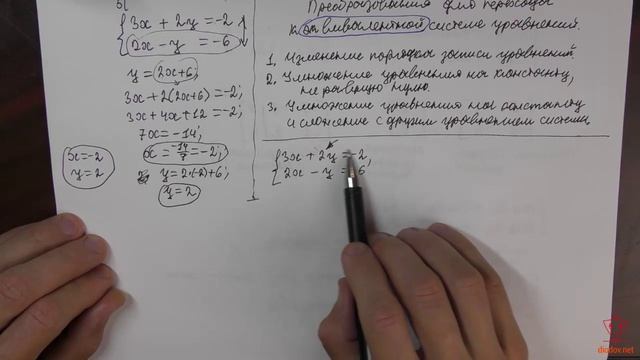 3x + 2y = -2
2x - y = -6
y = 2x+6;
3x + 2(2x+6) = -2;
3x + 4x + 12 = -2;
7x = -14;
x = -14/7 = -2;
y = 2·(-2)+6;
y = 2
x = -2
y = 2
Преобразования для перехода
к эквивалентной системе уравнений.
1. Изменение порядка записи уравнений.
2. Умножение уравнения на константу,
не равную нулю.
3. Умножение уравнения на константу
и сложение с другим уравнением системы
3x + 2y = -2,
2x - y = -6
diedov.net